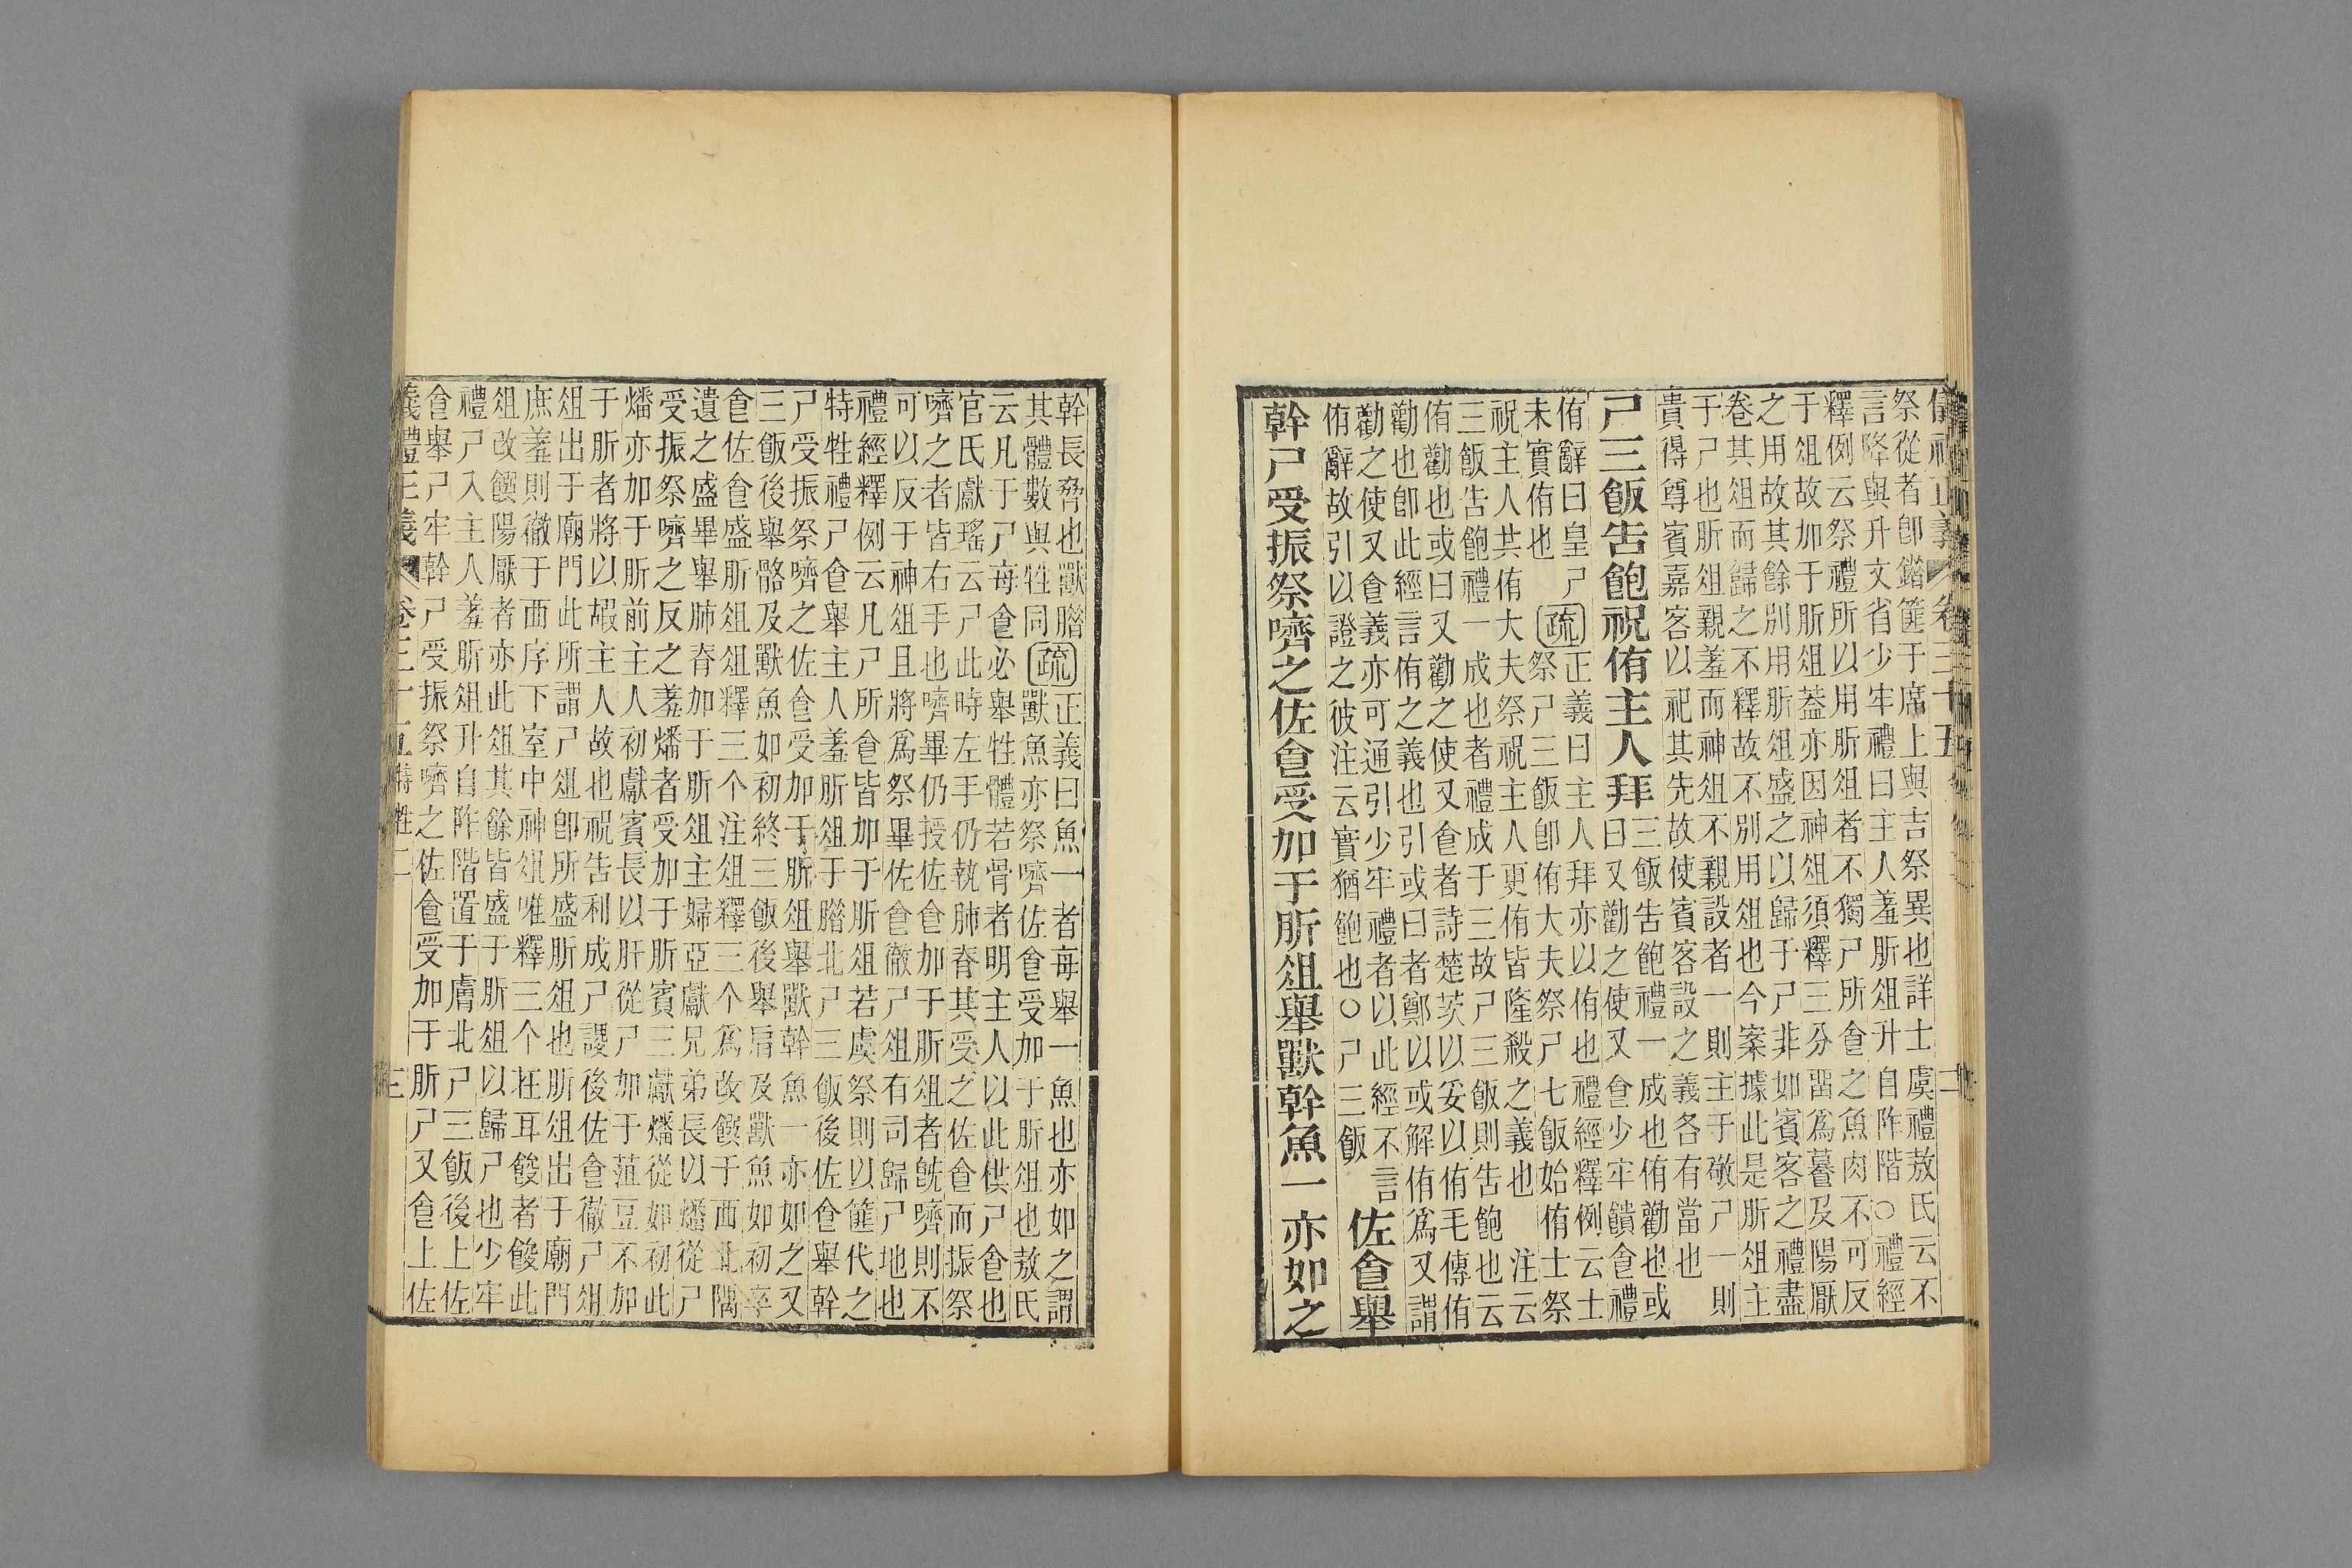 儀禮正義 卷三十五 二
祭從者卽錯篚于席上與吉祭異也詳士虞禮敖氏云不
言降與升文省少牢禮曰主人羞肵俎升自阼階○禮經
釋例云祭禮所以用肵俎者不獨尸所食之魚肉不可反
于俎故加于肵俎葢亦因神俎須釋三分畱爲暮及陽厭
之用故其餘別用肵俎盛之以歸于尸非如賓客之禮盡
卷其俎而歸之不釋故不別用俎也今案據此是肵俎主
于尸也肵俎親羞而神俎不親設者一則主于敬尸一則
貴得尊賓嘉客以祀其先故使賓客設之義各有當也
尸三飯告飽祝侑主人拜
三飯告飽禮一成也侑勸也或
曰又勸之使又食少牢饋食禮
侑辭曰皇尸
未實侑也
疏
正義曰主人拜亦以侑也禮經釋例云士
祭尸三飯卽侑大夫祭尸七飯始侑士祭
祝主人共侑大夫祭祝主人更侑皆隆殺之義也 注云
三飯告飽禮一成也者禮成于三故尸三飯則告飽也云
侑勸也或曰又勸之使又食者詩楚茨以妥以侑毛傳侑
勸也卽此經言侑之義也引或曰者鄭以或解侑爲又謂
勸之使又食義亦可通引少牢禮者以此經不言
侑辭故引以證之彼注云實猶飽也○尸三飯
佐食舉
幹尸受振祭嚌之佐食受加于肵俎舉獸幹魚一亦如之
幹長脅也獸腊
其體數與牲同
疏
正義曰魚一者每舉一魚也亦如之謂
獸魚亦祭嚌佐食受加于肵俎也敖氏
云凡于尸每食必舉牲體若骨者明主人以此供尸食也
官氏獻瑤云尸此時左手仍執肺脊其受之佐食而振祭
嚌之者皆右手也嚌畢仍授佐食加于肵俎者旣嚌則不
可以反于神俎且將爲祭畢佐食徹尸俎有司歸尸地也
禮經釋例云凡尸所食皆加于肵俎若虞祭則以篚代之
特牲禮尸食舉主人羞肵俎于腊北尸三飯後佐食舉幹
尸受振祭嚌之佐食受加于肵俎舉獸幹魚一亦如之又
三飯後舉骼及獸魚如初終三飯後舉肩及獸魚如初卒
食佐食盛肵俎俎釋三个注俎釋三个爲改饌于西北隅
遺之盛畢舉肺脊加于肵俎主婦亞獻兄弟長以燔從尸
受振祭嚌之反之羞燔者受加于肵賓三獻燔從如初此
燔亦加于肵前主人初獻賓長以肝從尸加于菹豆不加
于肵者將以嘏主人故也祝告利成尸謖後佐食徹尸俎
俎出于廟門此所謂尸俎卽所盛肵俎也肵俎出于廟門
庶羞則徹于西序下室中神俎唯釋三个在耳餕者餕此
俎改饌陽厭者亦此俎其餘皆盛于肵俎以歸尸也少牢
禮尸入主人羞肵俎升自阼階置于膚北尸三飯後上佐
食舉尸牢幹尸受振祭嚌之佐食受加于肵尸又食上佐
義禮正義 卷三十五 特牲二 三